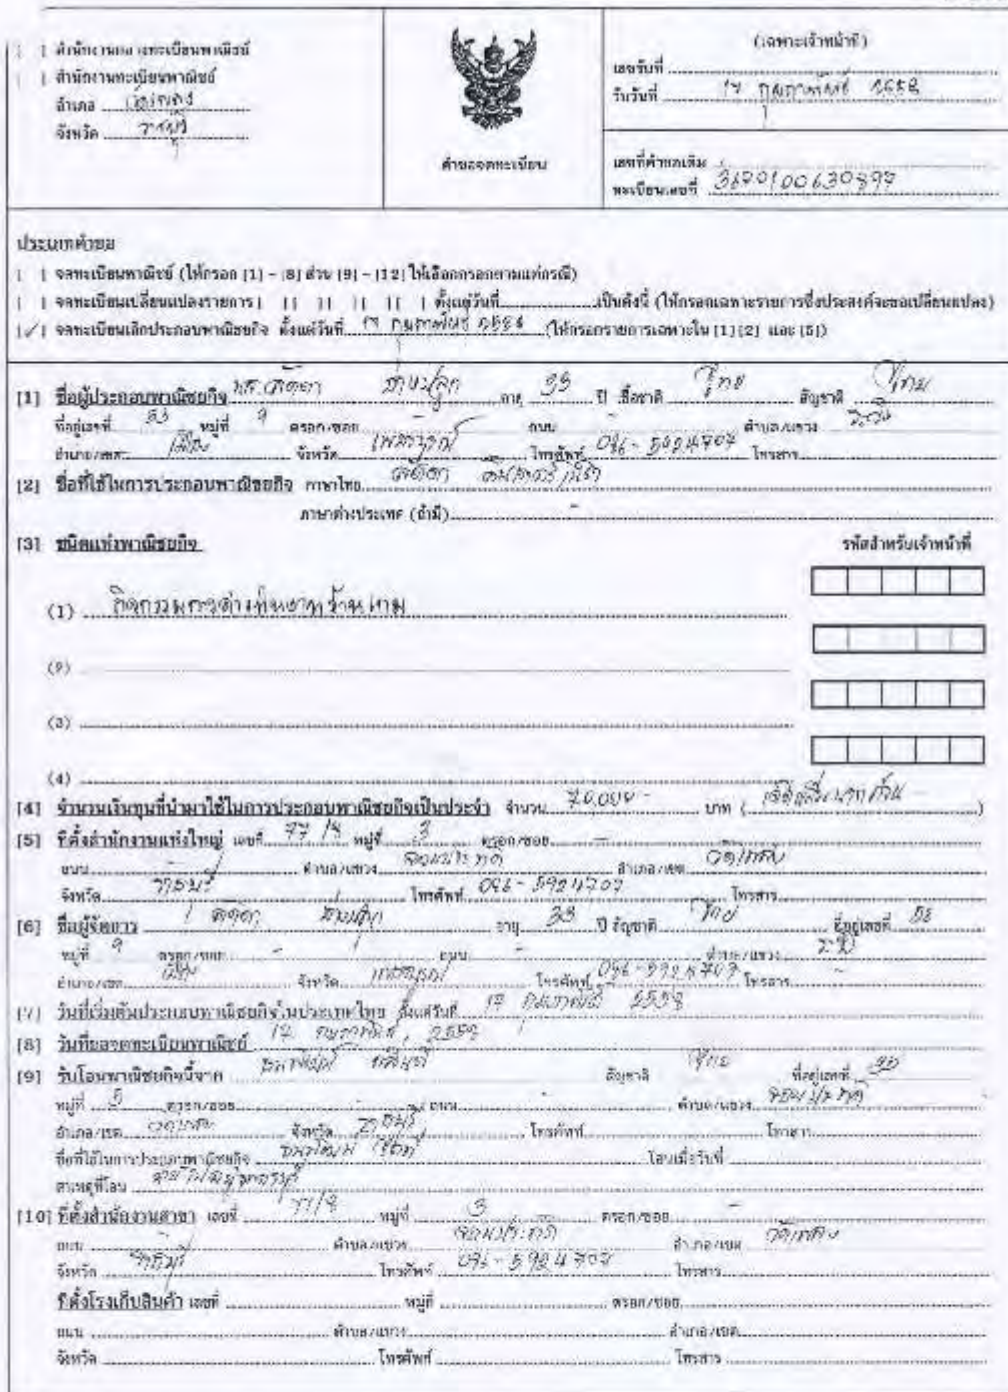 [ ] สำนักงานกลางทะเบียนพาณิชย์
[ ] สำนักงานทะเบียนพาณิชย์
อำเภอ วัดเพลง
จังหวัด ราชบุรี
คำขอจดทะเบียน
(เฉพาะเจ้าหน้าที่)
เลขรับที่
รับวันที่ 17 กุมภาพันธ์ 2558
เลขที่คำขอเดิม
ทะเบียนเลขที่ 3670100630897
ประเภทคำขอ
[ ] จดทะเบียนพาณิชย์ (ให้กรอก [1] - [8] ส่วน [9] - [12] ให้เลือกกรอกตามแต่กรณี)
[ ] จดทะเบียนเปลี่ยนแปลงรายการ [ ] [ ] [ ] [ ] ตั้งแต่วันที่ เป็นดังนี้ (ให้กรอกเฉพาะรายการซึ่งประสงค์จะขอเปลี่ยนแปลง)
[✓] จดทะเบียนเลิกประกอบพาณิชยกิจ ตั้งแต่วันที่ 17 กุมภาพันธ์ 2558 (ให้กรอกรายการเฉพาะใน [1] [2] และ [5])
[1] ชื่อผู้ประกอบพาณิชยกิจ อายุ 33 ปี เชื้อชาติ ไทย สัญชาติ ไทย
ที่อยู่เลขที่ 53 หมู่ที่ 9 ตรอก/ซอย - ถนน - ตำบล/แขวง
อำเภอ/เขต เมือง จังหวัด เพชรบูรณ์ โทรศัพท์ 096-5924707 โทรสาร
[2] ชื่อที่ใช้ในการประกอบพาณิชยกิจ ภาษาไทย
ภาษาต่างประเทศ (ถ้ามี) -
[3] ชนิดแห่งพาณิชยกิจ รหัสสำหรับเจ้าหน้าที่
(1) กิจกรรม ร้านเกม
(2)
(3)
(4)
[4] จำนวนเงินทุนที่นำมาใช้ในการประกอบพาณิชยกิจเป็นประจำ จำนวน 70,000 - บาท (เจ็ดหมื่นบาทถ้วน)
[5] ที่ตั้งสำนักงานแห่งใหญ่ เลขที่ 77/8 หมู่ที่ 3 ตรอก/ซอย -
ถนน - ตำบล/แขวง จอมประทัด อำเภอ/เขต วัดเพลง
จังหวัด ราชบุรี โทรศัพท์ 096-5924707 โทรสาร
[6] ชื่อผู้จัดการ อายุ 33 ปี สัญชาติ ไทย ที่อยู่เลขที่ 53
หมู่ที่ 9 ตรอก/ซอย - ถนน - ตำบล/แขวง
อำเภอ/เขต เมือง จังหวัด เพชรบูรณ์ โทรศัพท์ 096-5924707 โทรสาร -
[7] วันที่เริ่มต้นประกอบพาณิชยกิจในประเทศไทย ตั้งแต่วันที่ 17 กุมภาพันธ์ 2558
[8] วันที่ขอจดทะเบียนพาณิชย์ 17 กุมภาพันธ์ 2558
[9] รับโอนพาณิชยกิจนี้จาก สัญชาติ ไทย ที่อยู่เลขที่
หมู่ที่ 5 ตรอก/ซอย - ถนน - ตำบล/แขวง จอมประทัด
อำเภอ/เขต วัดเพลง จังหวัด ราชบุรี โทรศัพท์ โทรสาร
ชื่อที่ใช้ในการประกอบพาณิชยกิจ โอนเมื่อวันที่
สาเหตุที่โอน
[10] ที่ตั้งสำนักงานสาขา เลขที่ 77/8 หมู่ที่ 3 ตรอก/ซอย -
ถนน - ตำบล/แขวง จอมประทัด อำเภอ/เขต วัดเพลง
จังหวัด ราชบุรี โทรศัพท์ 096-5924707 โทรสาร
ที่ตั้งโรงเก็บสินค้า เลขที่ หมู่ที่ ตรอก/ซอย
ถนน ตำบล/แขวง อำเภอ/เขต
จังหวัด โทรศัพท์ โทรสาร